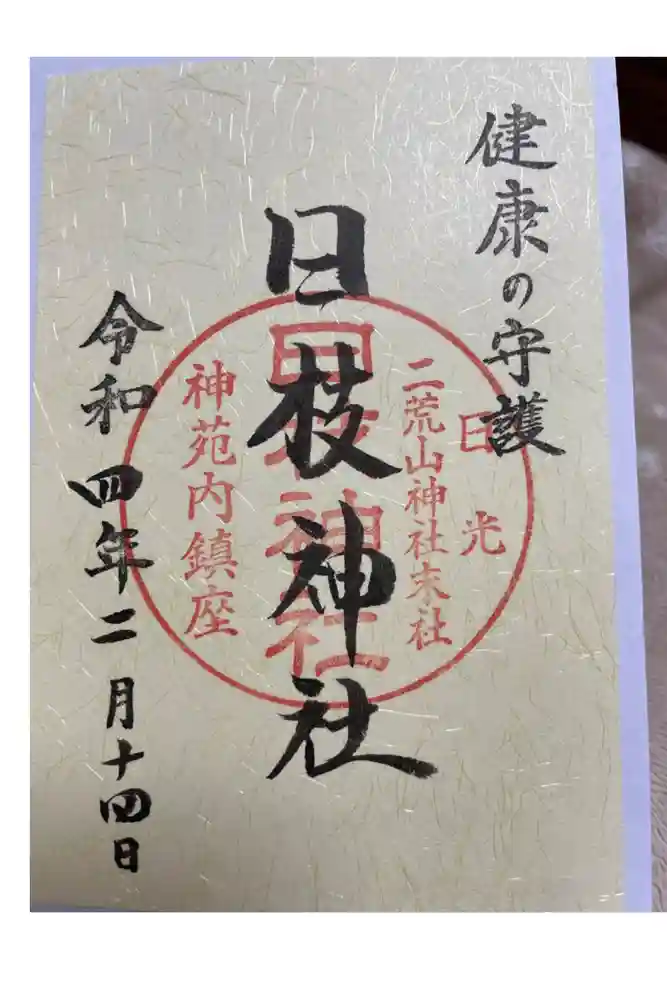 健康の守護
日光
二荒山神社末社
日枝神社
日枝神社
神苑内鎮座
令和四年二月十四日